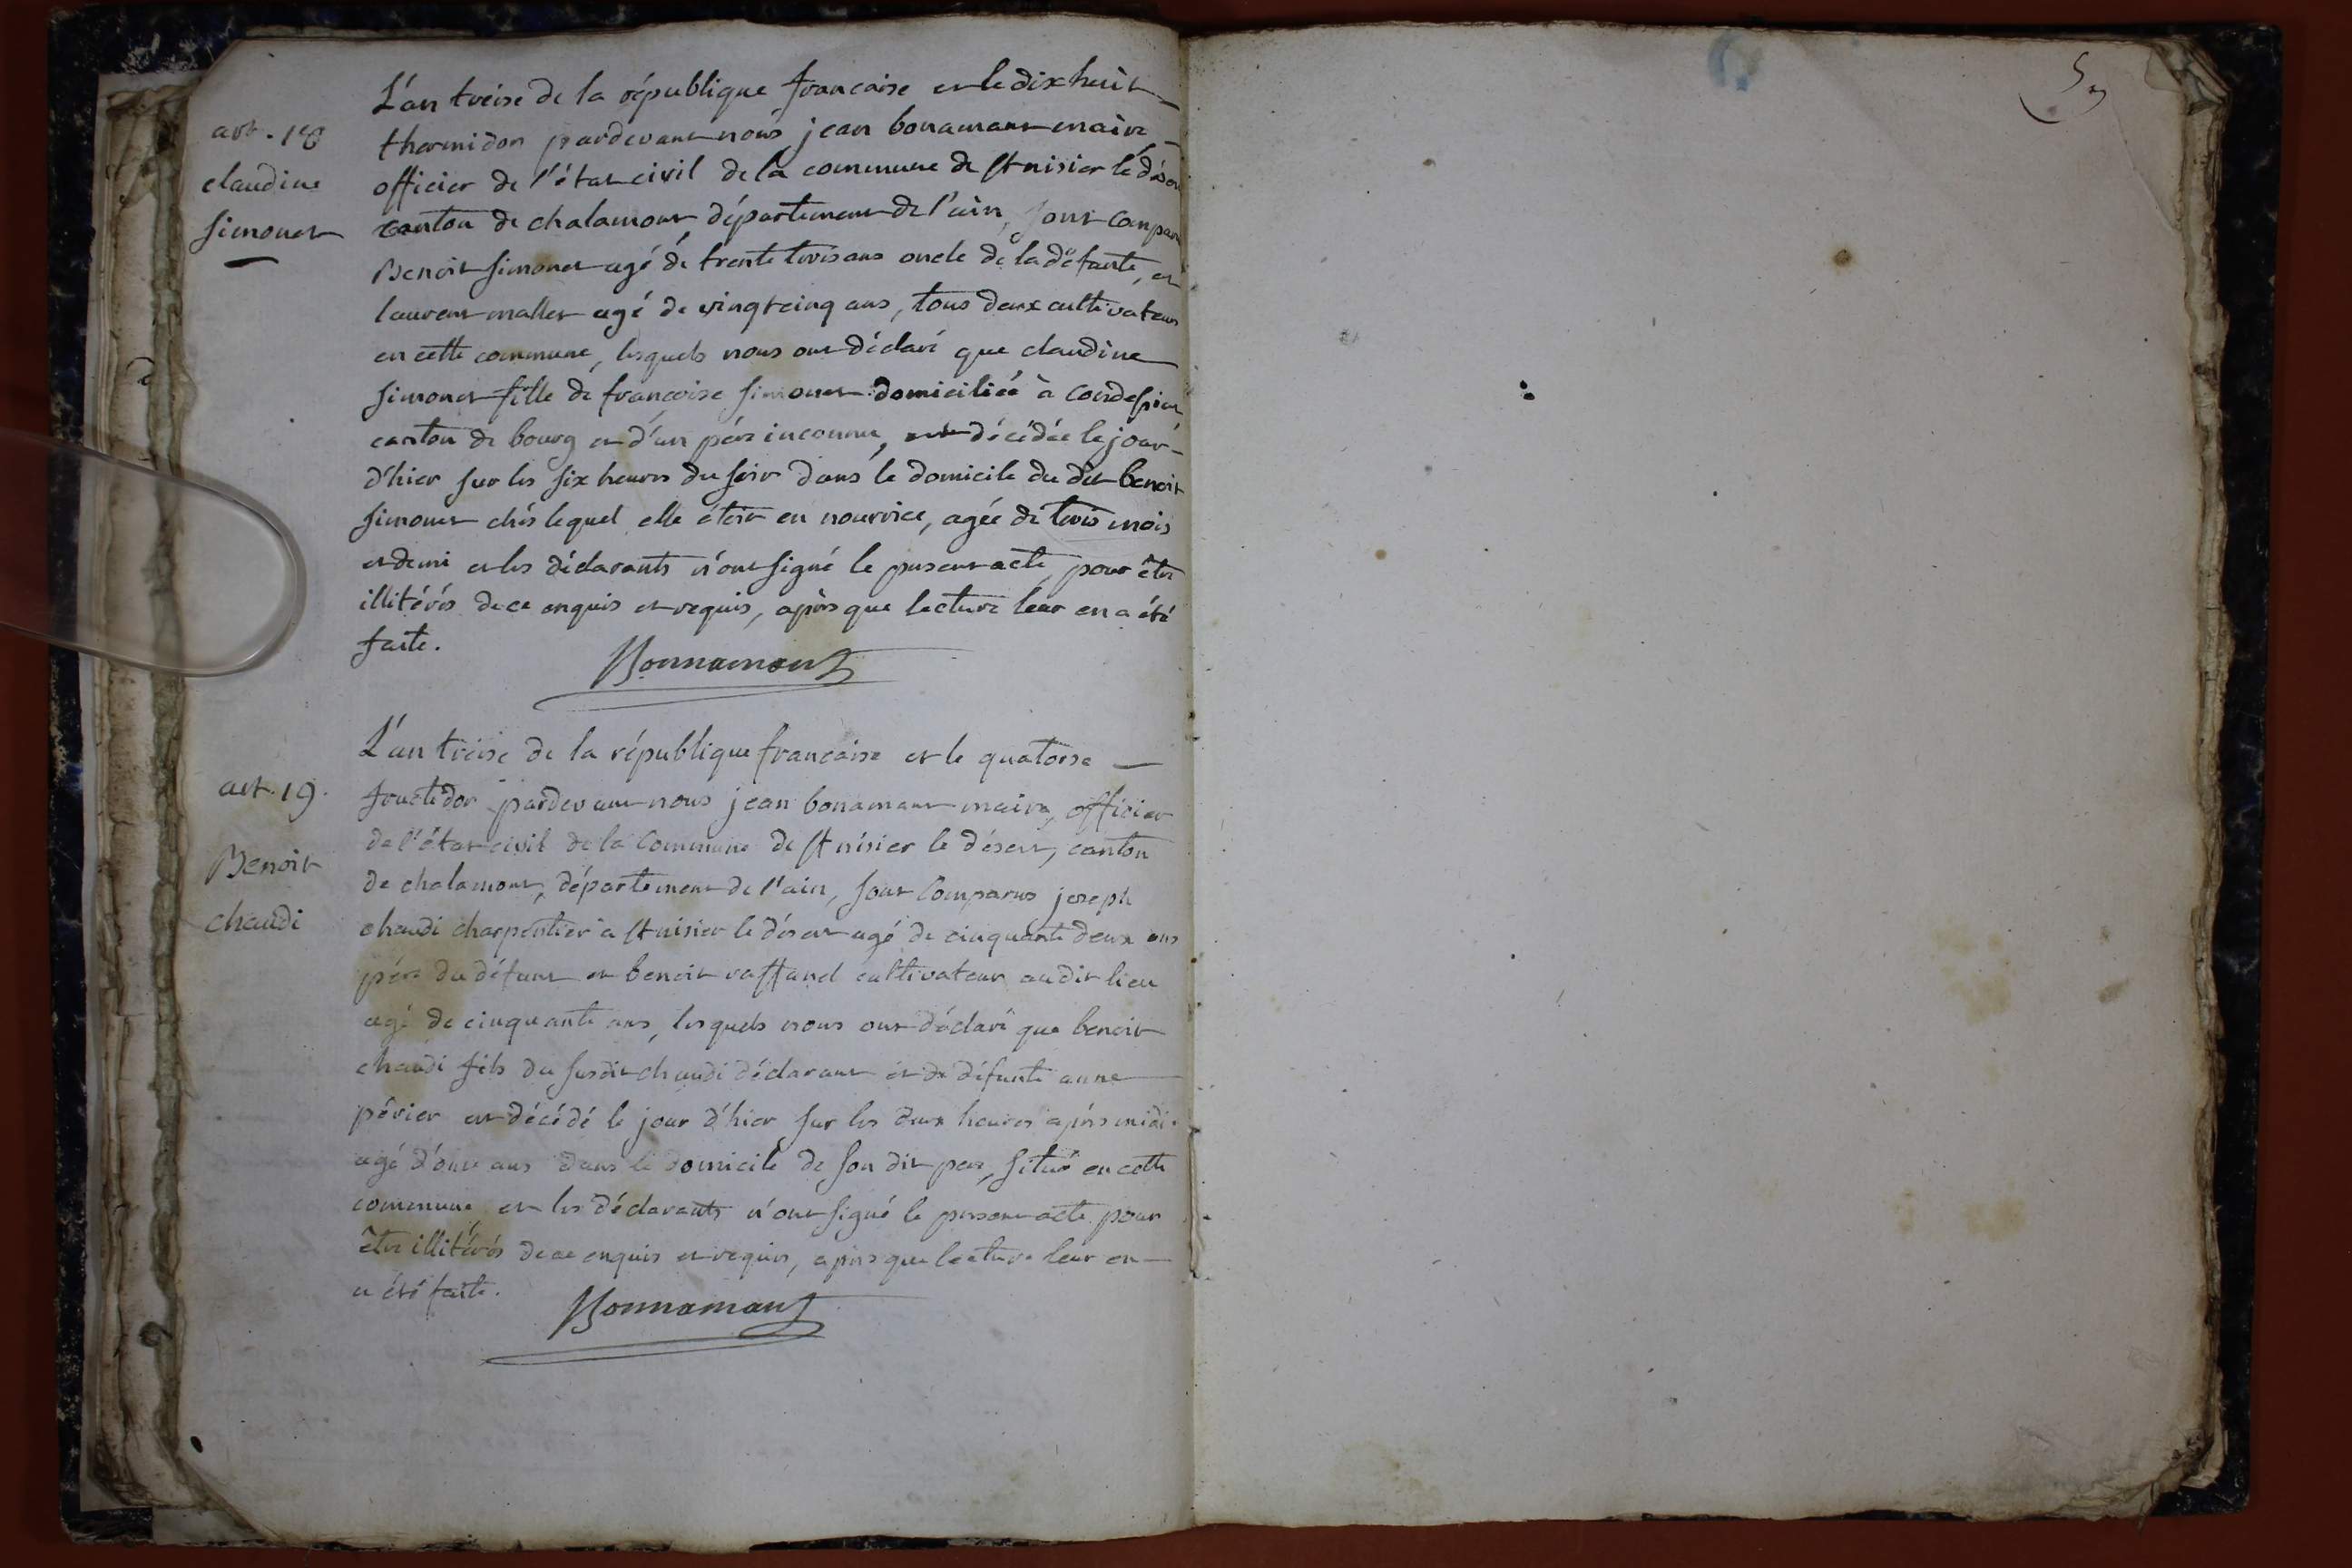 art. 18
claudine
simonet
L'an treise de la république francaise et le dix huit
thermidor pardevant nous jean bonamant maire
officier de l'état civil de la commune de St nisier le désert
canton de chalamont département de l'ain, sont comparu
Benoit simonet agé de trente trois ans oncle de la défunte, et
laurent mallet agé de vingt cinq ans, tous deux cultivateurs
en cette commune, lesquels nous ont déclaré que claudine
simonet fille de francoise simonet domiciliée à condessiat
canton de bourg et d'un pére inconnu, est décédée le jour
d'hier sur les six heures du soir dans le domicile du dit benoit
simonet chés lequel elle étoit en nourrice, agée de trois mois
et demi et les déclarants n'ont signé le present acte, pour être
illitérés de ce enquis et requis, après que lecture leur en a été
faite.
Bonnamant
art. 19.
Benoit
chaudi
L'an treise de la république francaise et le quatorse
fructidor pardevant nous jean bonamant maire, officier
de l'état civil de la commune de St nisier le désert, canton
de chalamont, département de l'ain, sont comparus joseph
chaudi charpentier à St nisier le désert agé de cinquante deux ans
pére du défunt et benoit raffanel cultivateur audit lieu
agé de cinquante ans, lesquels nous ont déclaré que benoit
chaudi fils du susdit chaudi déclarant et de défunte anne
périer est décédé le jour d'hier sur les deux heures après midi
agé d'onse ans dans le domicile de son dit pere, situé en cette
commune et les déclarants n'ont signé le present acte pour
être illitérés de ce enquis et requis, après que lecture leur en
a été faite.
Bonnamant